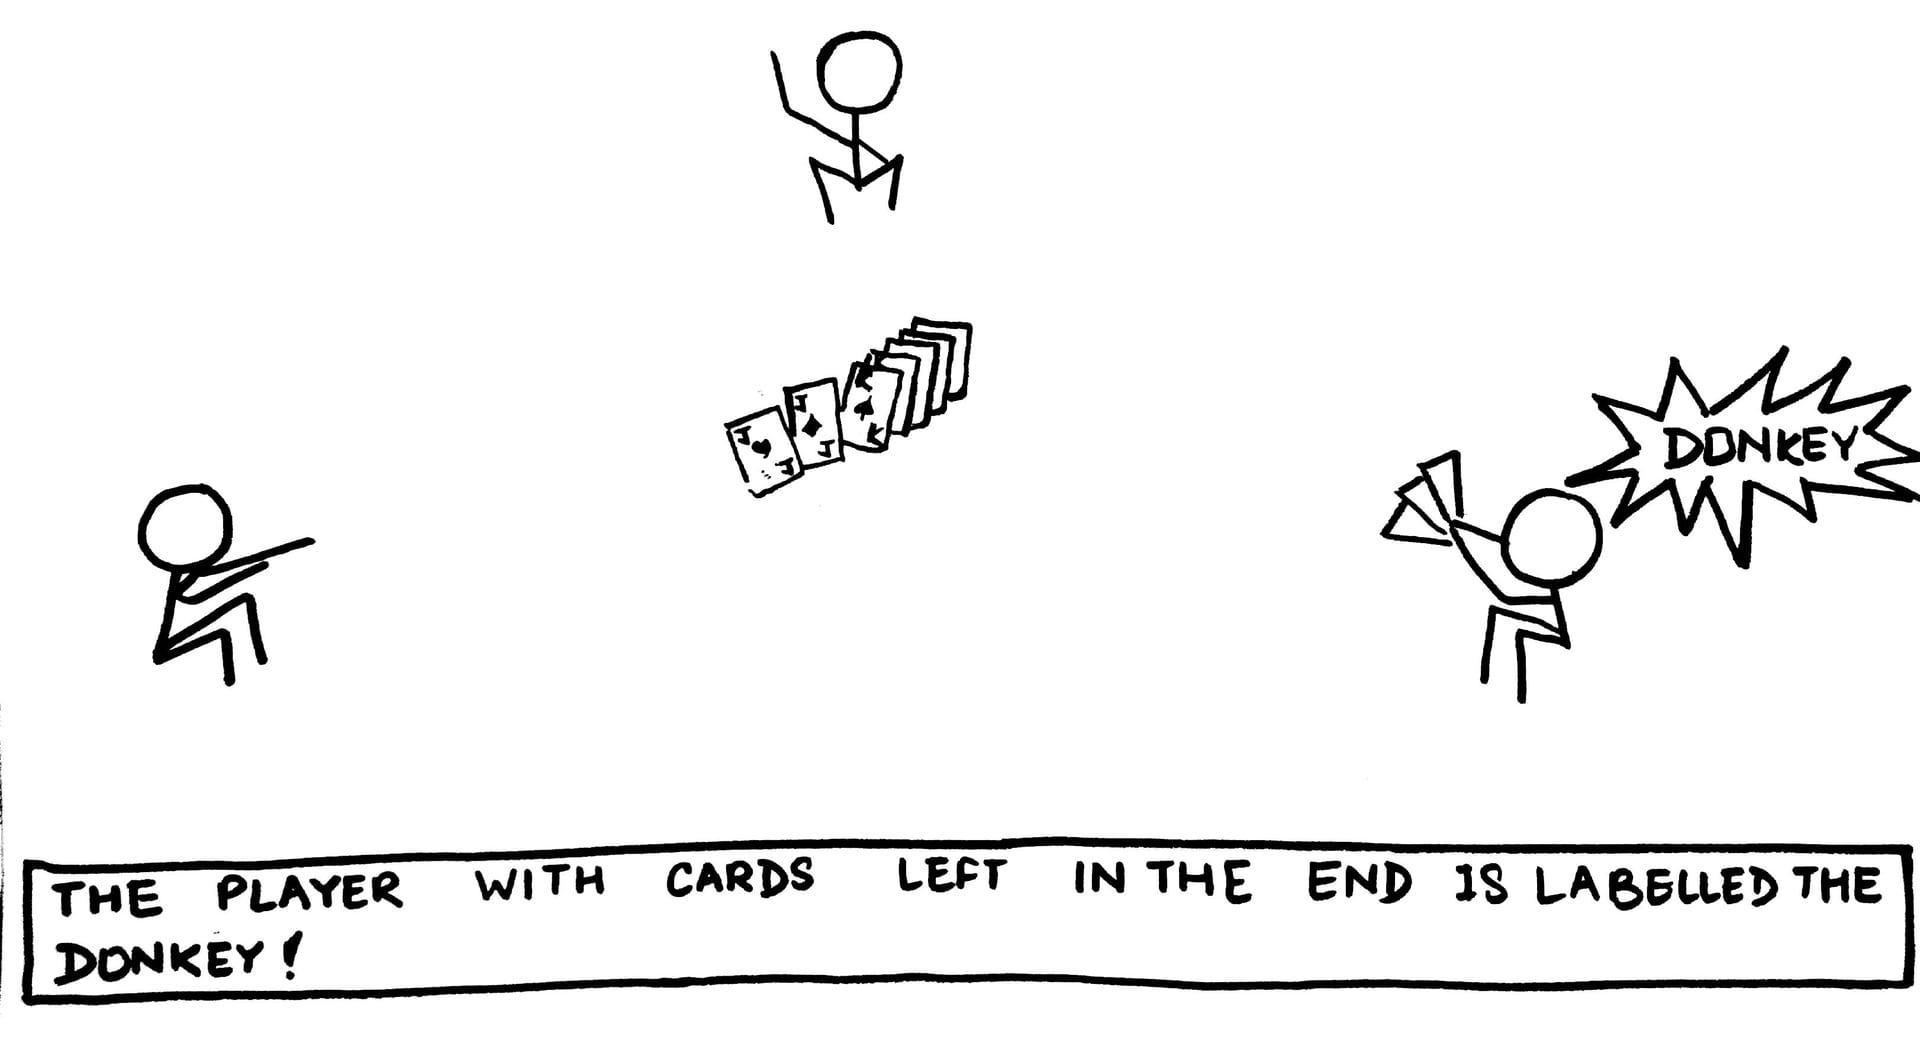 J
J
J
J
K
K
DONKEY
THE PLAYER WITH CARDS LEFT IN THE END IS LABELLED THE
DONKEY!